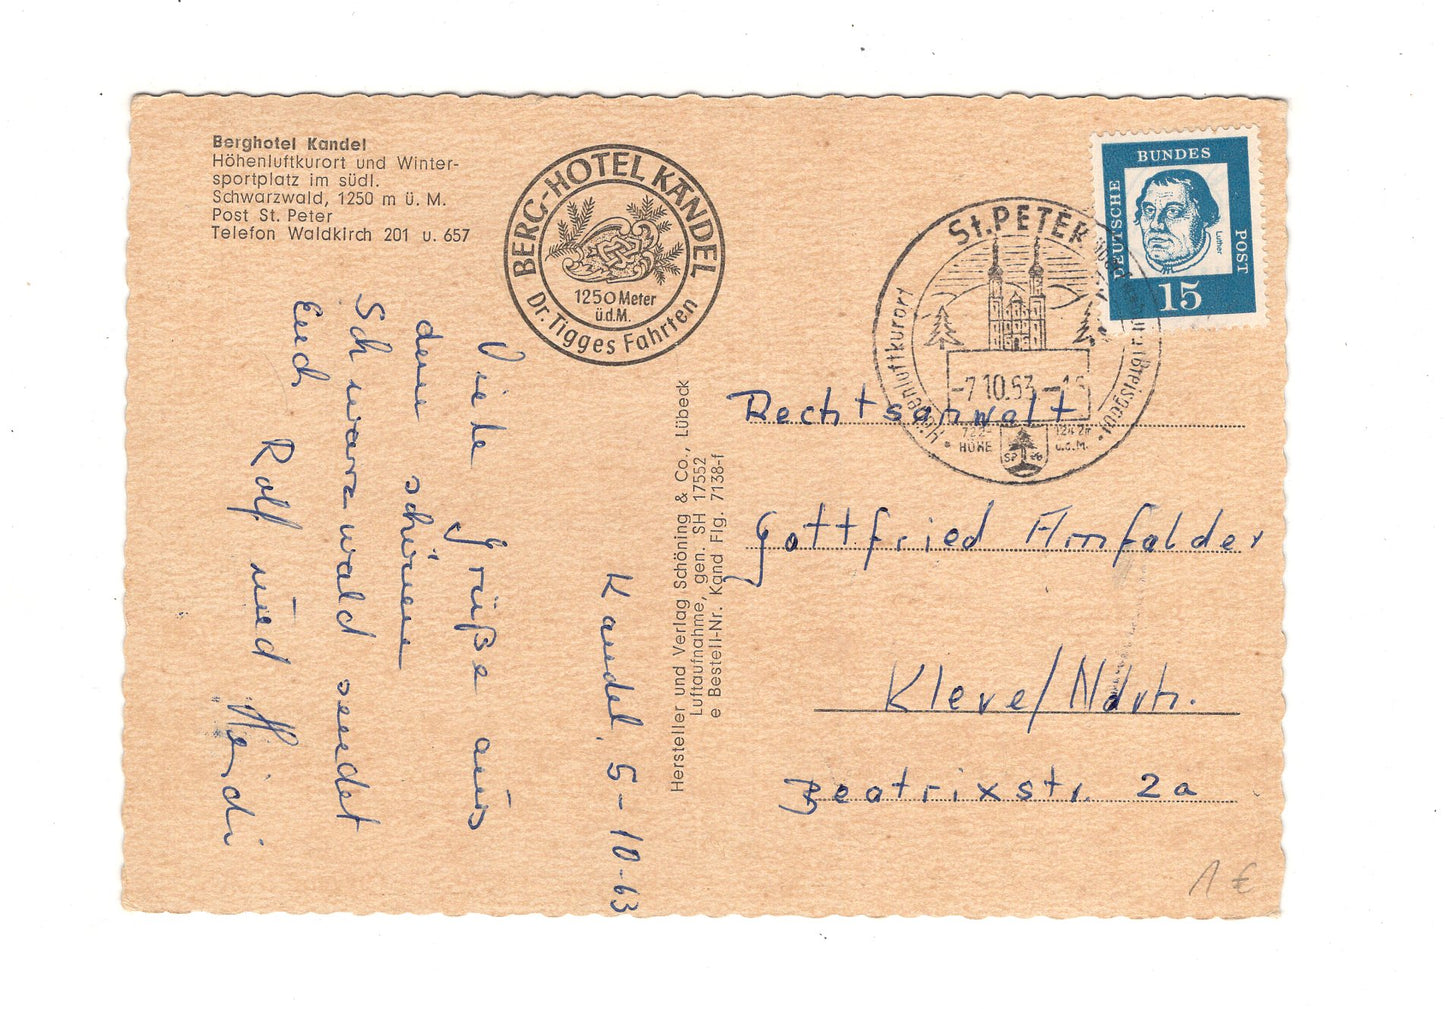 Berghotel Kandel
Höhenluftkurort und Winter-
sportplatz im südl.
Schwarzwald, 1250 m ü. M.
Post St. Peter
Telefon Waldkirch 201 u. 657
BERG-HOTEL KANDEL
1250 Meter
ü.d.M.
Dr. Tigges Fahrten
Kandel, 5-10-63
Viele Grüße aus
dem schönen
Schwarzwald sendet
Euch
Rolf und Heidi
Hersteller und Verlag Schöning & Co., Lübeck
Luftaufnahme, gen. SH 17552
e Bestell-Nr. Kand Flg. 7138-f
St. PETER
Höhenluftkurort
-7.10.63-
HÖHE
ü.d.M.
DEUTSCHE
BUNDES
POST
Luther
15
Rechtsanwalt
Gottfried Arnfalder
Kleve/Ndrh.
Beatrixstr. 2a
1 €